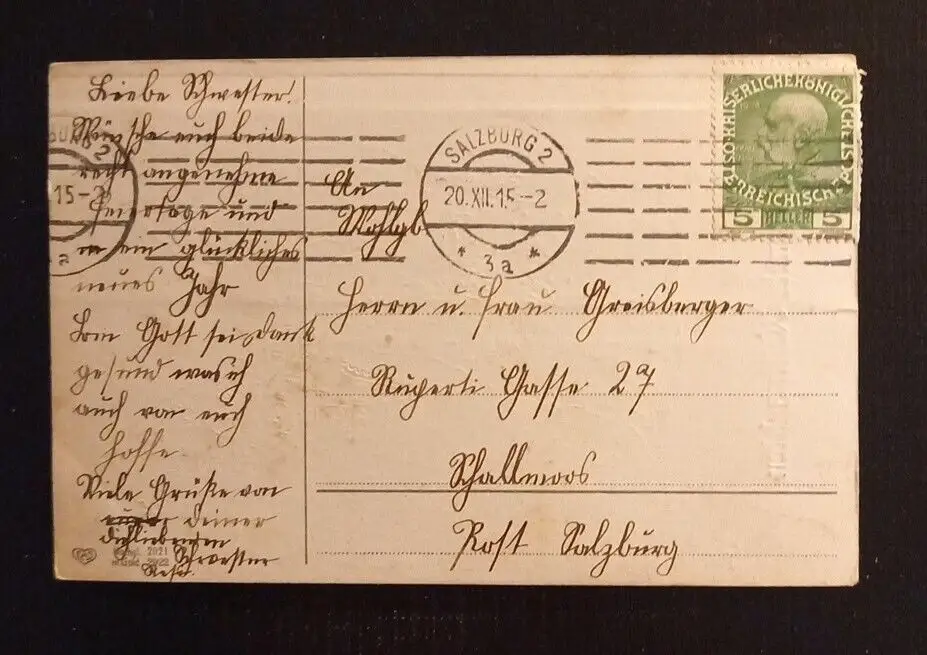 Liebe Schwester!
Wünsche euch beide
recht angenehme
Feiertage und
ein glückliches
neues Jahr
Bin Gott sei dank
gesund was ich
auch von euch
hoffe
Viele Grüße von
deiner
dichliebenden
Schwester
Resi.
An
Wohlgb
Herrn u. Frau Greisberger
Ruperti Gasse 27
Schallmoos
Post Salzburg
SALZBURG 2
20.XII.15-2
* 3a *
BURG 2
15-2
a
KAISERLICHE KÖNIGLICHE
ÖSTERREICHISCHE POST
5 HELLER 5
EAS
2021